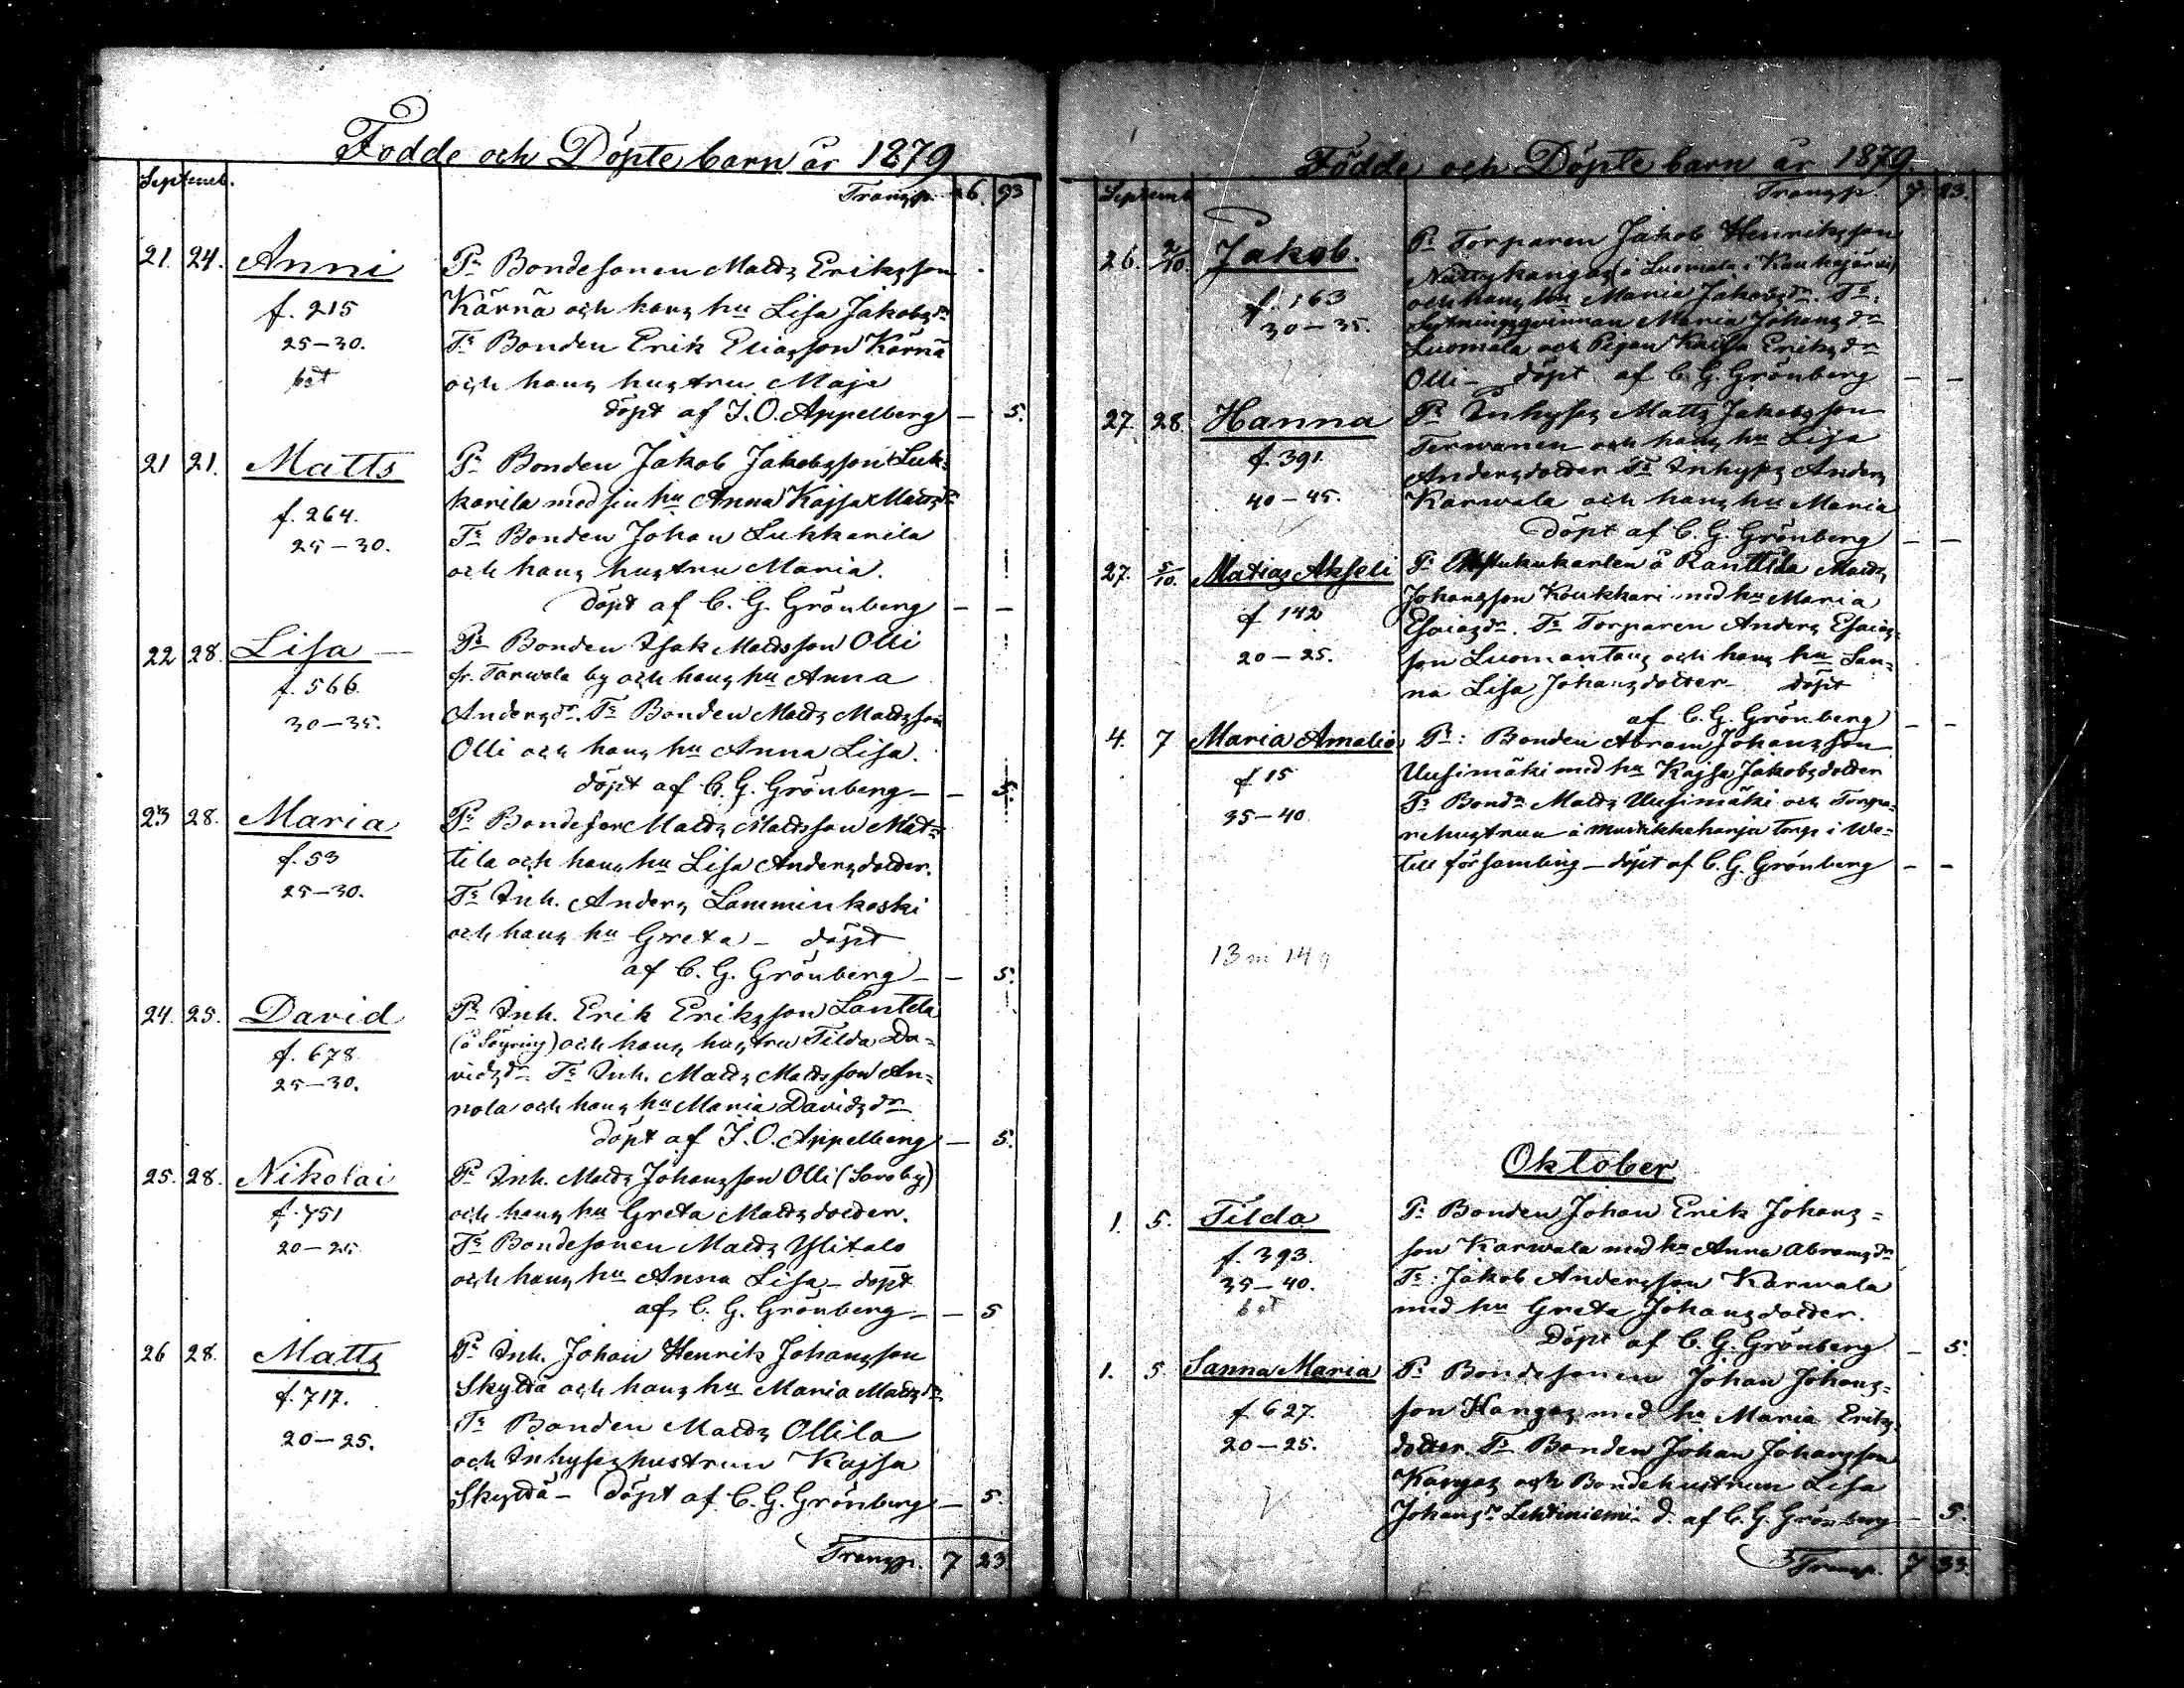 Födde och Döpte barn år 1879
Septemb.
Transp. 6. 93
21. 24. Anni Pr Bondesonen Matts Eriksson
f. 215 Kärnä och hans hu Lisa Jakobsdr
25-30. Tr Bonden Erik Eliasson Kärnä
och hans hustru Maja
döpt af J. O. Appelberg — 5.
21 21. Matts Pr Bonden Jakob Jakobsson Luk-
f. 264. karila med sin hu Anna Kajsa Mattsdr
25-30. Tr Bonden Johan Lukkarila
och hans hustru Maria.
döpt af C. G. Grönberg — —
22 28. Lisa Pr Bonden Isak Mattsson Olli
f. 566. fr. Tarwola by och hans hu Anna
30-35. Andersdr. Tr Bonden Matts Mattsson
Olli och hans hu Anna Lisa.
döpt af C. G. Grönberg — 5.
23 28. Maria Pr Bondeson Matts Mattsson Mat-
f. 53 tila och hans hu Lisa Andersdotter.
25-30. Tr Inh. Anders Lamminkoski
och hans hu Greta — döpt
af C. G. Grönberg — 5.
24. 25. David Pr Inh. Erik Eriksson Lantela
f. 678 (å Söyring) och hans hustru Tilda Da-
25-30. vidsdr. Tr Inh. Matts Mattsson An-
nola och hans hu Maria Davidsdr
döpt af J. O. Appelberg — 5.
25. 28. Nikolai Pr Inh. Matts Johansson Olli (Savoby)
f. 751 och hans hu Greta Mattsdotter.
20-25 Tr Bondesonen Matts Ylitalo
och hans hu Anna Lisa — döpt
af C. G. Grönberg — 5
26 28. Matts Pr Inh. Johan Henrik Johansson
f. 717. Skyttä och hans hu Maria Mattsdr
20-25. Tr Bonden Matts Ollila
och Inhyseshustrun Kajsa
Skyttä — Döpt af C. G. Grönberg — 5.
Transp. 7 23
Födde och Döpte barn år 1879.
Septemb
Transp. 7. 23.
26. 2/10. Jakob. Pr Torparen Jakob Henriksson
f. 163 (å Luomala i Kauhajärvi)
30-35. och hans hu Maria Jakobsdr. Tr:
Sytningsqvinnan Maria Johansdr
Luomala och Pigan Kajsa Eriksdr
Olli — döpt af C. G. Grönberg — —
27. 28. Hanna Pr Inhyses Matts Jakobsson
f. 391. Terwanen och hans hu Lisa
40-45. Andersdotter Tr Inhyses Anders
Karwala och hans hu Maria
Döpt af C. G. Grönberg — —
27. 5/10. Matias Akseli Pr å Ranttila Matts
f 142 Johansson Koukkari med hu Maria
20-25. Esaiasdr. Tr Torparen Anders Esaias-
son Luomantaus och hans hu San-
na Lisa Johansdotter — döpt
af C. G. Grönberg — —
4. 7 Maria Amalia Pr: Bonden Abram Johansson
f 15 Uusimäki med hu Kajsa Jakobsdotter
35-40. Tr Bondn Matts Uusimäki och Torpa-
rehustrun å torp i We-
till församling — döpt af C. G. Grönberg — —
13 m 14 q
Oktober
1. 5. Tilda Pr Bonden Johan Erik Johans-
f. 393. son Karwala med hu Anna Abramsdr
35-40. Tr: Jakob Andersson Karwala
med hu Greta Johansdotter.
Döpt af C. G. Grönberg — 5.
1. 5 Sanna Maria Pr Bondesonen Johan Johans-
f. 627. son Kangas med hu Maria Eriks-
20-25. dotter. Tr Bonden Johan Johansson
Kangas och Bondehustrun Lisa
Johansdr Lehtiniemi — d. af C. G. Grönberg — 5.
Transp. 7 33.